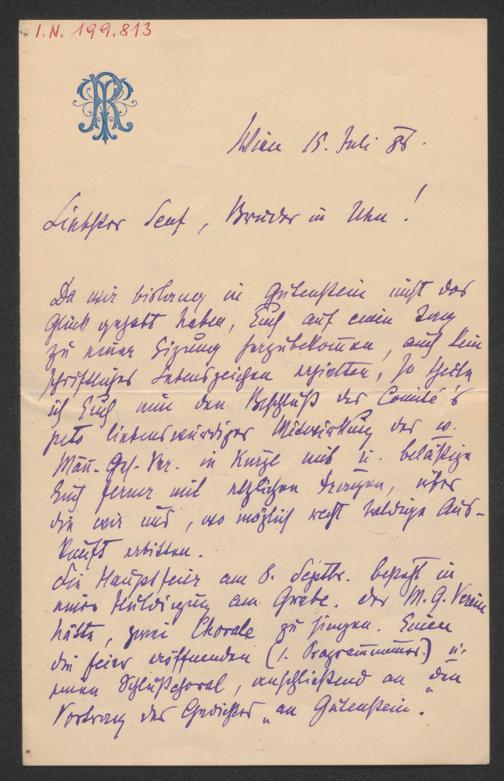 I.N. 199.813
Wien 15. Juli 88.
Liebster Senf, Bruder in Uhu!
Da wir bislang in Gutenstein nicht das
Glück gehabt haben, Euch auf einen Tag
zu einer Sizung herzubekommen, auch kein
schriftliches Lebenszeichen erhielten, so theile
ich Euch nun den Beschluß des Comité's
liebenswürdiger Mitwirkung des w.
Män.-Ges.-Ver. in Kürze mit u. belästige
Euch ferner mit etlichen Fragen, über
die wir uns, wo möglich recht baldige Aus-
kunft erbitten.
Die Hauptfeier am 8. Septbr. besteht in
einer Huldigung am Grabe. Der M. G. Verein
hätte, zwei Chorale zu singen. Einen
die Feier eröffnenden (1. Programmnummer) u.
einen Schlußchoral, anschließend an den
Vortrag des Gedichtes „an Gutenstein".